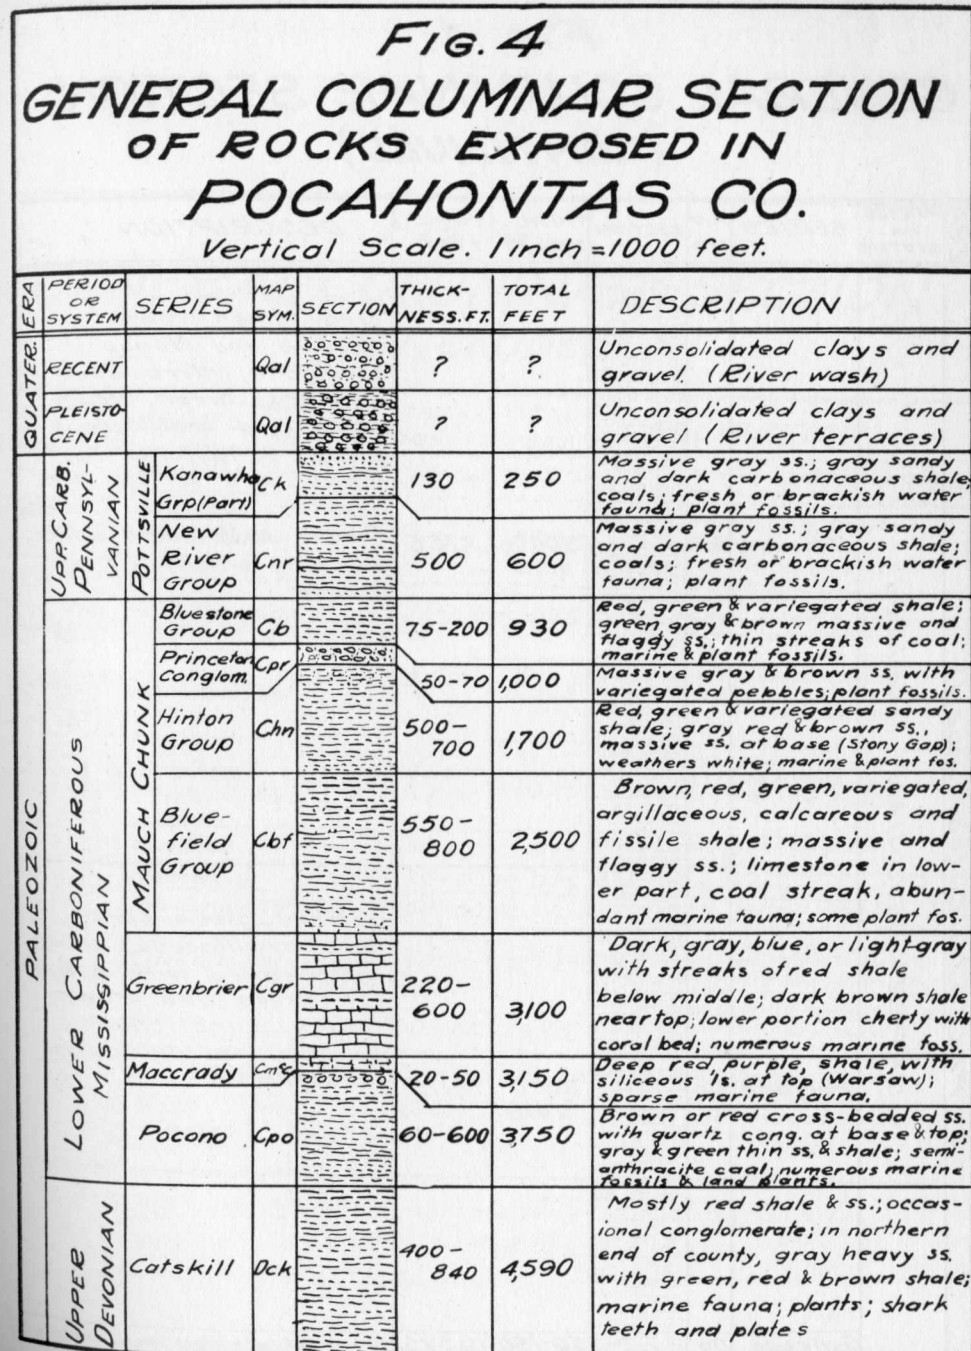 FIG. 4
GENERAL COLUMNAR SECTION
OF ROCKS EXPOSED IN
POCAHONTAS CO.
Vertical Scale. 1 inch = 1000 feet.
ERA
PERIOD
OR
SYSTEM
SERIES
MAP
SYM.
SECTION
THICK-
NESS. FT.
TOTAL
FEET
DESCRIPTION
QUATER.
RECENT
Qal
?
?
Unconsolidated clays and
gravel. (River wash)
PLEISTO-
CENE
Qal
?
?
Unconsolidated clays and
gravel (River terraces)
PALEOZOIC
UPP. CARB.
PENNSYL-
VANIAN
POTTSVILLE
Kanawha
Grp (Part)
Ck
130
250
Massive gray ss.; gray sandy
and dark carbonaceous shale;
coals; fresh or brackish water
fauna; plant fossils.
New
River
Group
Cnr
500
600
Massive gray ss.; gray sandy
and dark carbonaceous shale;
coals; fresh or brackish water
fauna; plant fossils.
LOWER CARBONIFEROUS
MISSISSIPPIAN
MAUCH CHUNK
Bluestone
Group
Cb
75-200
930
Red, green & variegated shale;
green gray & brown massive and
flaggy ss.; thin streaks of coal;
marine & plant fossils.
Princeton
Conglom.
Cpr
50-70
1,000
Massive gray & brown ss. with
variegated pebbles; plant fossils.
Hinton
Group
Chn
500-
700
1,700
Red, green & variegated sandy
shale; gray red & brown ss.,
massive ss. at base (Stony Gap);
weathers white; marine & plant fos.
Blue-
field
Group
Cbf
550-
800
2,500
Brown, red, green, variegated,
argillaceous, calcareous and
fissile shale; massive and
flaggy ss.; limestone in low-
er part, coal streak, abun-
dant marine fauna; some plant fos.
Greenbrier
Cgr
220-
600
3,100
Dark, gray, blue, or light-gray
with streaks of red shale
below middle; dark brown shale
near top; lower portion cherty with
coral bed; numerous marine foss.
Maccrady
Cmc
20-50
3,150
Deep red, purple, shale, with
siliceous ls. at top (Warsaw);
sparse marine fauna.
Pocono
Cpo
60-600
3,750
Brown or red cross-bedded ss.
with quartz cong. at base & top;
gray & green thin ss. & shale; semi-
anthracite coal; numerous marine
fossils & land plants.
UPPER
DEVONIAN
Catskill
Dck
400-
840
4,590
Mostly red shale & ss.; occas-
ional conglomerate; in northern
end of county, gray heavy ss.
with green, red & brown shale;
marine fauna; plants; shark
teeth and plates